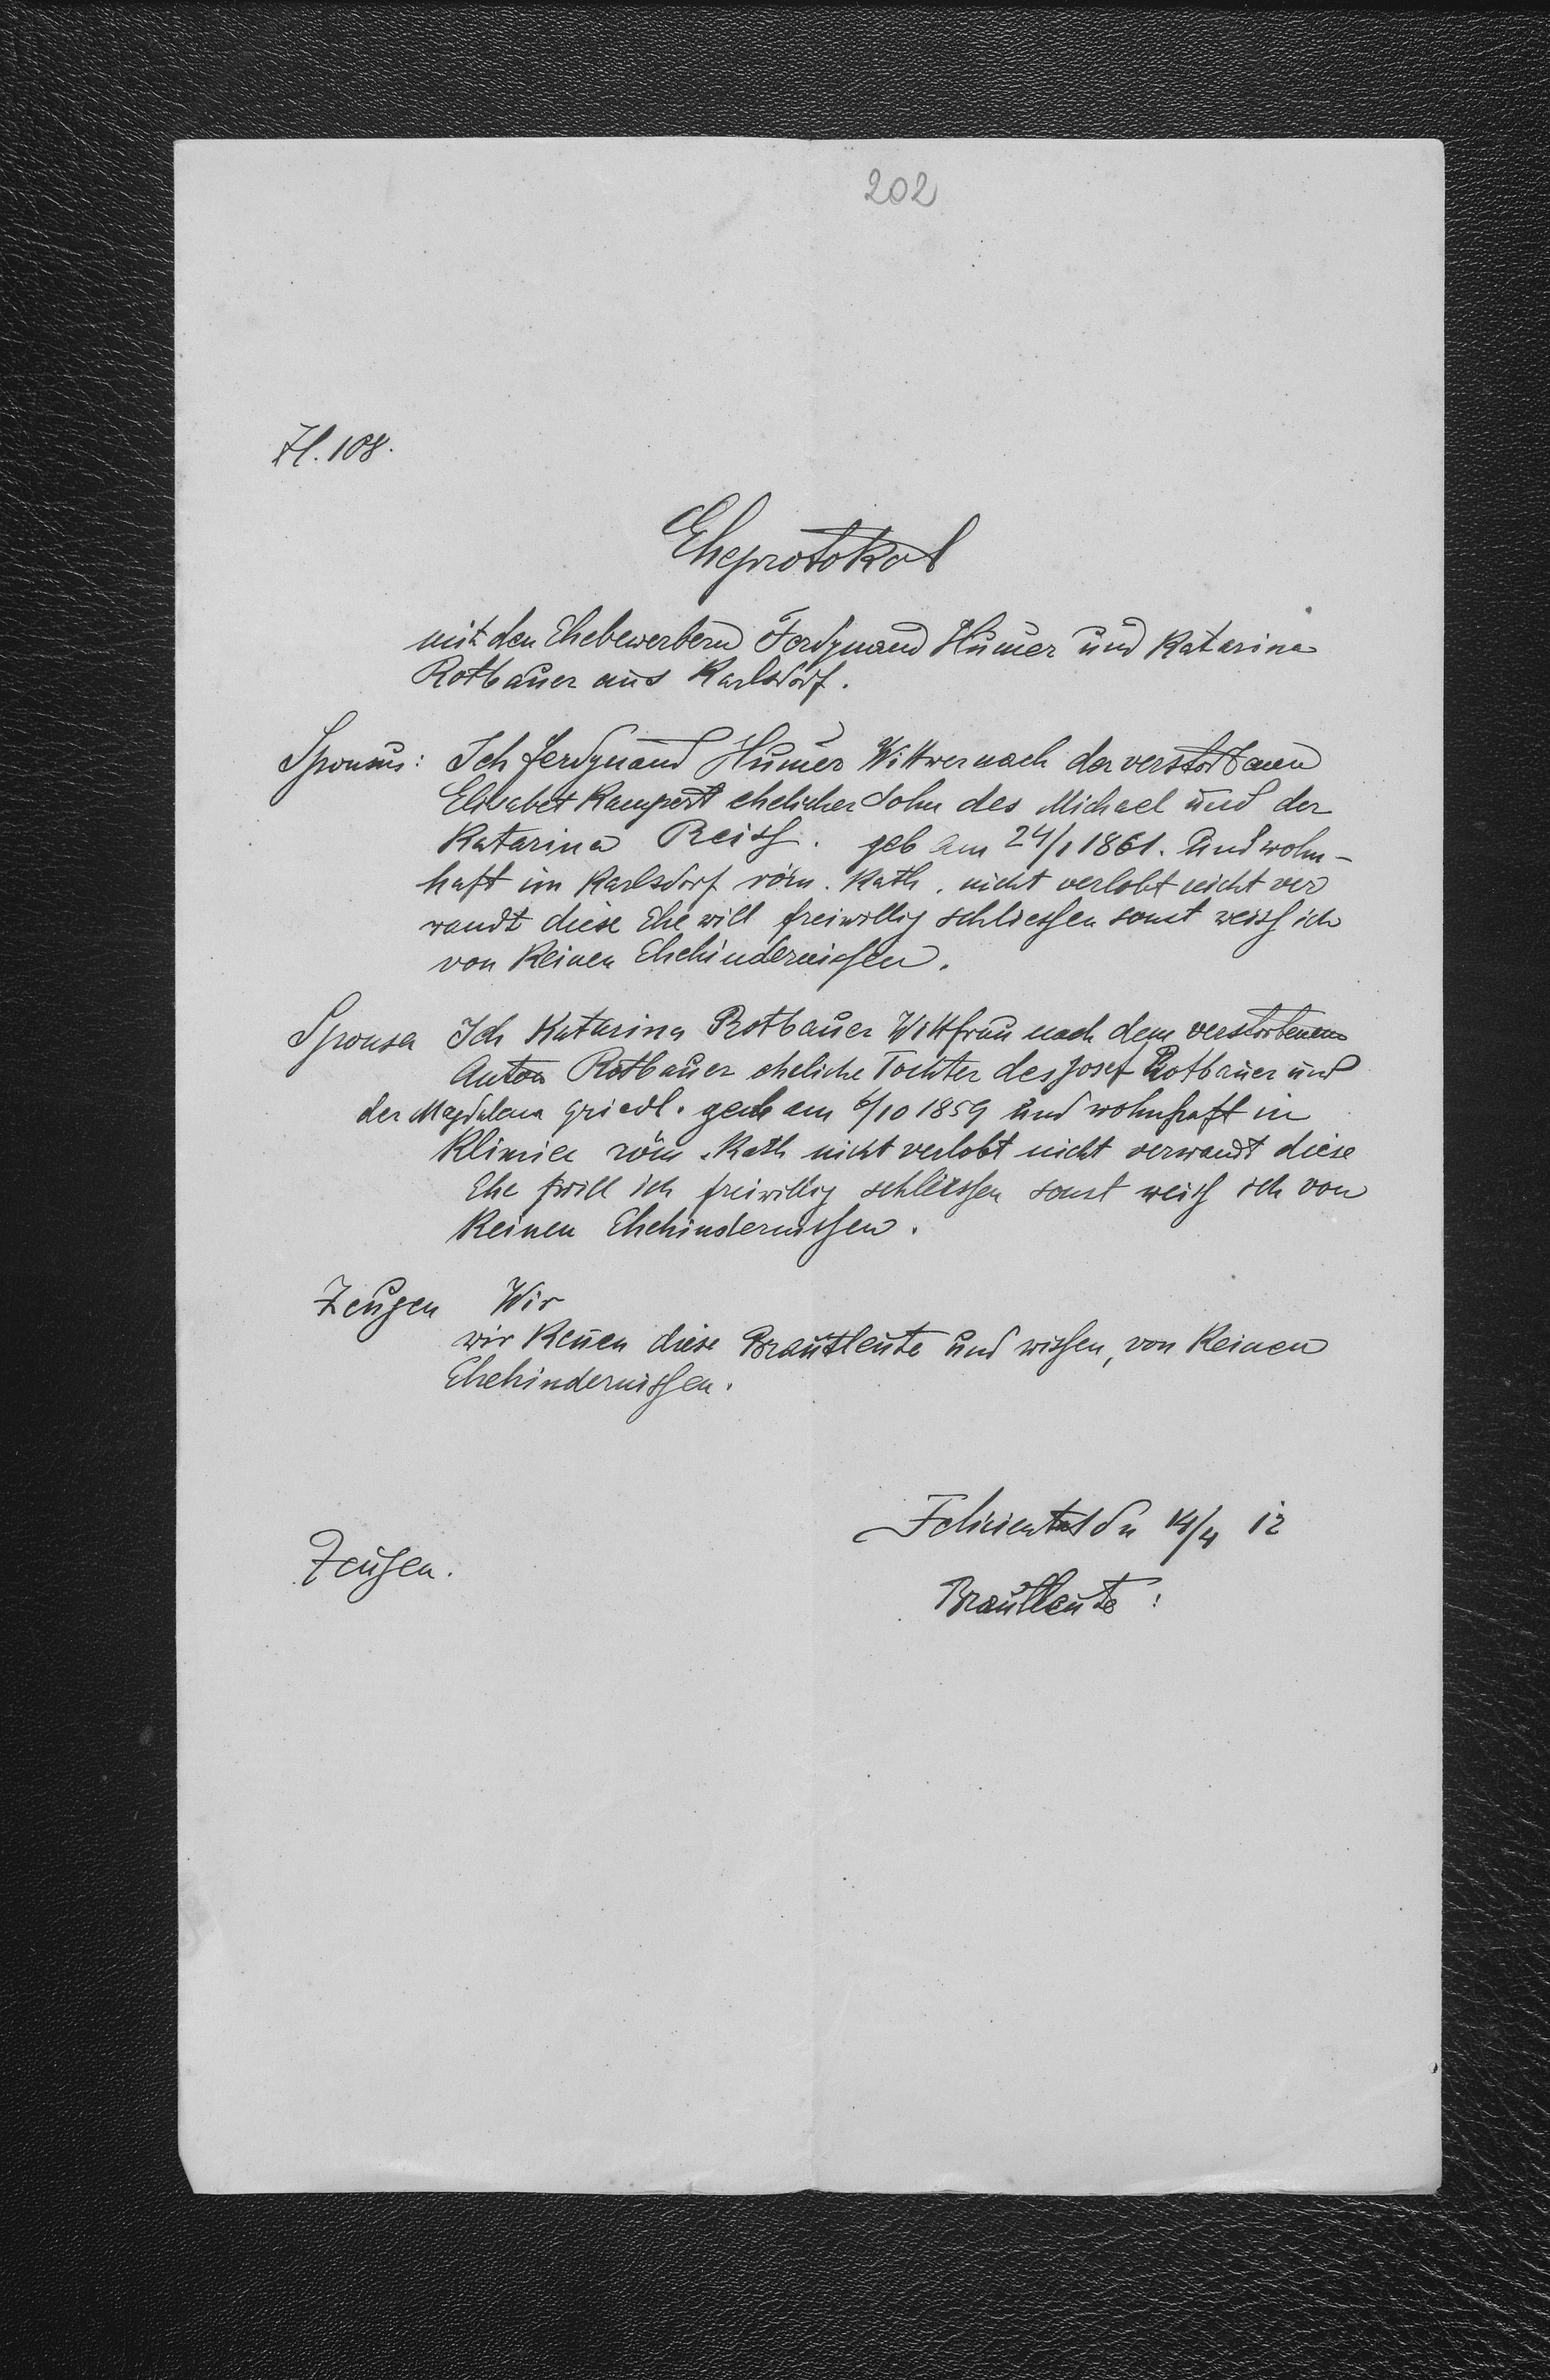 202
Zl. 108.
Eheprotokol
mit den Ehebewerbern Ferdynand Humer und Katarina
Rotbauer aus Karlsdorf.
Sponsus: Ich Ferdynand Humer Wittwer nach der verstorbenen
Elisabet Rampert ehelicher Sohn des Michael und der
Katarina Reiss. geb am 24/1 1861. und wohn-
haft im Karlsdorf röm. Kath. nicht verlobt nicht ver
wandt diese Ehe will freiwillig schliessen sonst weiss ich
von Keinen Ehehindernissen.
Sponsa Ich Katarina Rotbauer Wittfrau nach dem verstorbenen
Anton Rotbauer eheliche Tochter des Josef Rotbauer und
der Magdalena Griedl. geb am 6/10 1859 und wohnhaft in
Klimiec röm. Kath nicht verlobt nicht verwandt diese
Ehe will ich freiwillig schliessen sonst weiss ich von
Keinen Ehehindernissen.
Zeugen Wir
wir Kenen diese Brautleute und wissen, von Keinen
Ehehindernissen.
Felicienthal dn 14/4 12
Zeugen.
Brautleute: